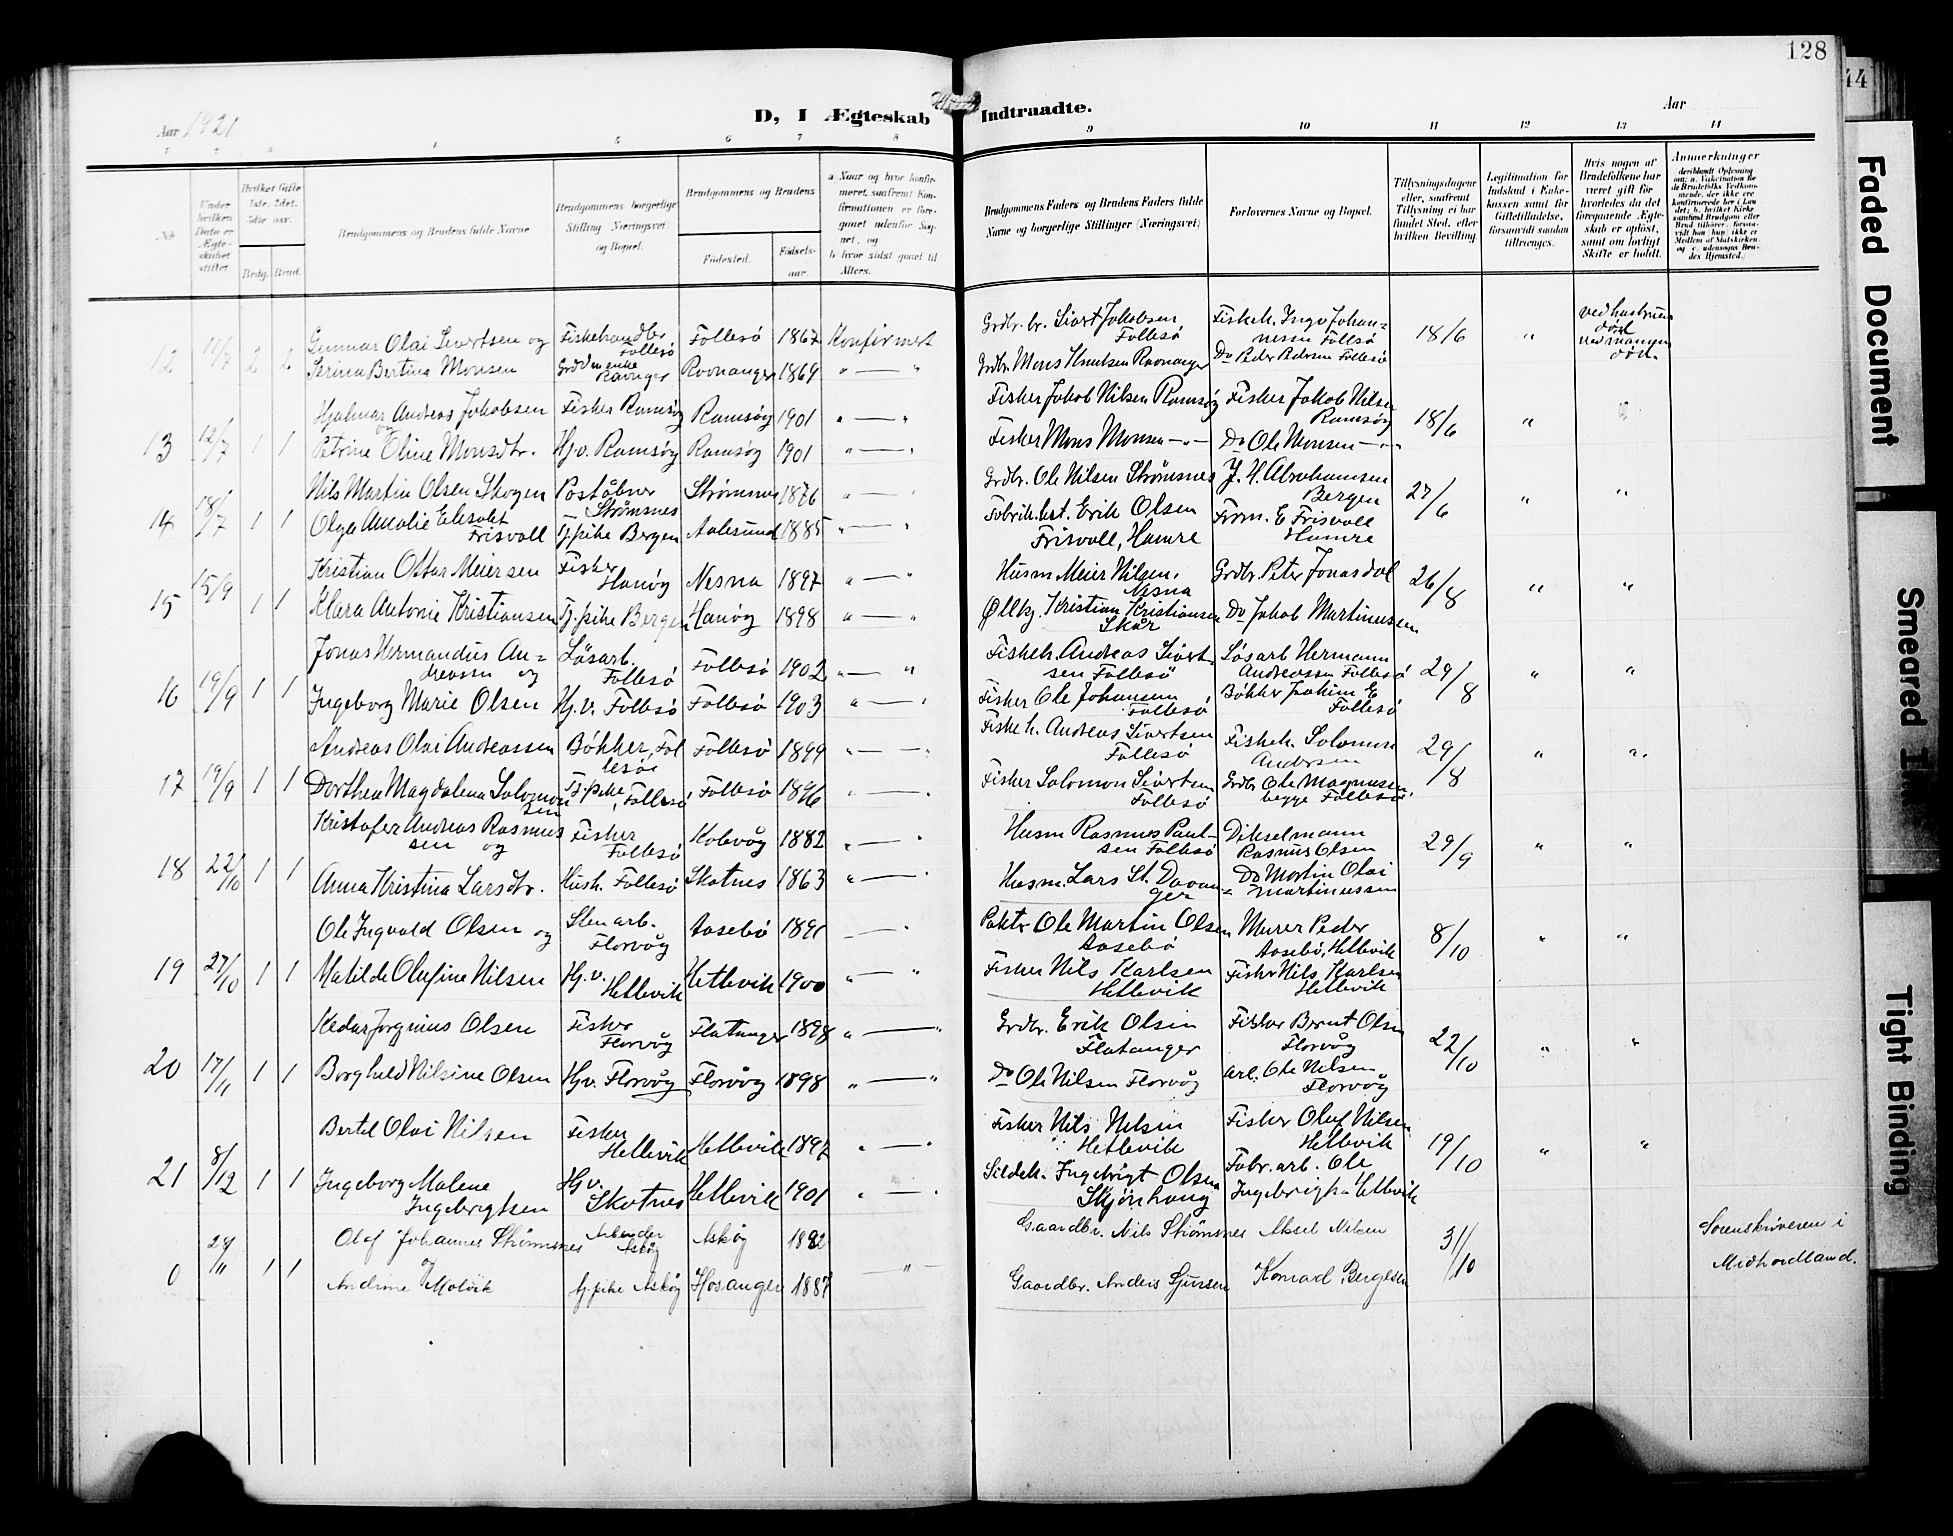 128
44
Aar 1921
D, I Ægteskab Indtraadte.
Aar
4 5 6 7 8 9 10 11 12 13 14
No.
Under hvilken Dato er Ægteskabet stiftet
Hvilket Gifte 1ste, 2det, 3die osv.
Brdg. Brud.
Brudgommens og Brudens fulde Navne
Brudgommens borgerlige Stilling (Næringsvei) og Bopæl.
Brudgommens og Brudens
Fødested. Fødselsaar.
a Naar og hvor konfirmeret, saafremt Konfirmationen er foregaaet udenfor Sognet, og
b hvor sidst gaaet til Alters.
Brudgommens Faders og Brudens Faders fulde Navne og borgerlige Stillinger (Næringsvei)
Forlovernes Navne og Bopæl.
Tillysningsdagene eller, saafremt Tillysning ei har fundet Sted, efter hvilken Bevilling.
Legitimation for Indskud i Enkekassen samt for Giftetilladelse, forsaavidt saadan tiltrenges.
Hvis nogen af Brudefolkene har været gift før hvorledes da det foregaaende Ægteskab er opløst, samt om lovligt Skifte er holdt.
Anmerkninger
12 11/7 2 2
Gunnar Olai Sivertsen og Fiskehandler Follesø Follesø 1867 Konfirmert Grdbr. Sivert Jakobsen Follesø Fiskeh. Inge Johannesen Follesø 18/6 " ved hustruens død
Serina Bertina Monsen Ravnanger Ravnanger 1869 " — " Grdbr. Mons Knutsen Ravnanger Do Peder Pedersen Follesø ved mannens død
13 12/7 1 1
Hjalmar Andreas Jakobsen og Fisker Ramsøy Ramsøy 1901 " — " Fisker Jakob Nilsen Ramsøy Fisker Jakob Nilsen Ramsøy 18/6 " "
Petrine Oline Monsdtr. Hj.v. Ramsøy Ramsøy 1901 " — " Fisker Mons Monsen — " — Do Ole Monsen — " —
14 18/7 1 1
Nils Martin Olsen Skogen Poståbner Strømsnes Strømsnes 1876 " — " Grdbr. Ole Nilsen Strømsnes J. H. Abrahamsen Bergen 27/6 " "
Olga Amalie Elisabet Frisvoll Tj.pike Bergen Aalesund 1885 " — " Fabrik.bst. Erik Olsen Frisvoll, Hamre Form. E Frisvoll Hamre
15 15/9 1 1
Kristian Ottar Meiersen Fisker Hanøy Nesna 1897 " — " Husm Meier Nilsen, Nesna Grdbr Peter Jonasdal 26/8 " "
Klara Antonie Kristiansen Tj.pike Bergen Hanøy 1898 " — " Kristian Kristiansen Skår Do Jakob Martinussen
16 19/9 1 1
Jonas Hermandus Andreassen og Løsarb. Follesø Follesø 1902 " — " Fiskeh. Andreas Sivertsen Follesø Løsarb Hermann Andreassen Follesø 29/8 " "
Ingeborg Marie Olsen Hj.v. Follesø Follesø 1903 " — " Fisker Ole Johansen, Follesø Bøkker Joakim E Follesø
17 19/9 1 1
Andreas Olai Andreassen Bøkker, Follesø Follesø 1899 " — " Fiske h. Andreas Sivertsen Follesø Fiskeh. Solomon Andersen 29/8 " "
Dorthea Magdalena Solomonsen Tj.pike, Follesø Follesø 1896 " — " Fisker Solomon Sivertsen Follesø Grdbr Ole Magnusen, begge Follesø
18 22/10 1 1
Kristofer Andreas Rasmussen og Fisker Follesø Kolevåg 1882 " — " Husm Rasmus Paulsen Follesø Dikselmann Rasmus Olsen 29/9 " "
Anna Kristina Larsdtr. Hush. Follesø Skotnes 1863 " — " Husm. Lars St. Davanger Do Martin Olai Martinussen
19 27/10 1 1
Ole Ingvald Olsen og Stenarb. Florvåg Aasebø 1891 — " Ole Martin Olsen Aasebø Murer Peder Aasebø, Hetlevik 8/10 " "
Matilde Olufine Nilsen Hj.v. Hetlevik Hetlevik 1900 " — " Fisker Nils Karlsen Hetlevik Fisker Nils Karlsen Hetlevik
20 17/11 1 1
Olsen Fisker Florvåg Flatanger 1898 " — " Grdbr. Erik Olsen Flatanger Fisker Bernt Olsen Florvåg 22/10 " "
Borghild Nilsine Olsen Hj.v. Florvåg Florvåg 1898 " — " Do Ole Nilsen Florvåg arb. Ole Nilsen Florvåg
21 8/12 1 1
Bertel Olai Nilsen Fisker Hetlevik Hetlevik 1897 " — " Fisker Nils Nilsen Hetlevik Fisker Oluf Nilsen Hetlevik 19/10 " "
Ingeborg Malene Ingebrigtsen Hj.v. Skotnes Hetlevik 1901 " — " Sildeh. Ingebrigt Olsen Skjønhaug Fabr.arb. Ole Hetlevik
0 24/11 1 1
Olaf Johannes Strømsnes og Arbeider Askøy Askøy 1882 Gaardbr. Nils Strømsnes Aksel Nilsen 31/10 Sorenskriveren i Midhordland.
Andrine Molvik Tj.pike Askøy Hosanger 1887 — " — Gaardbr. Anders Konrad Bergesen
Faded Document
Smeared
Tight Binding